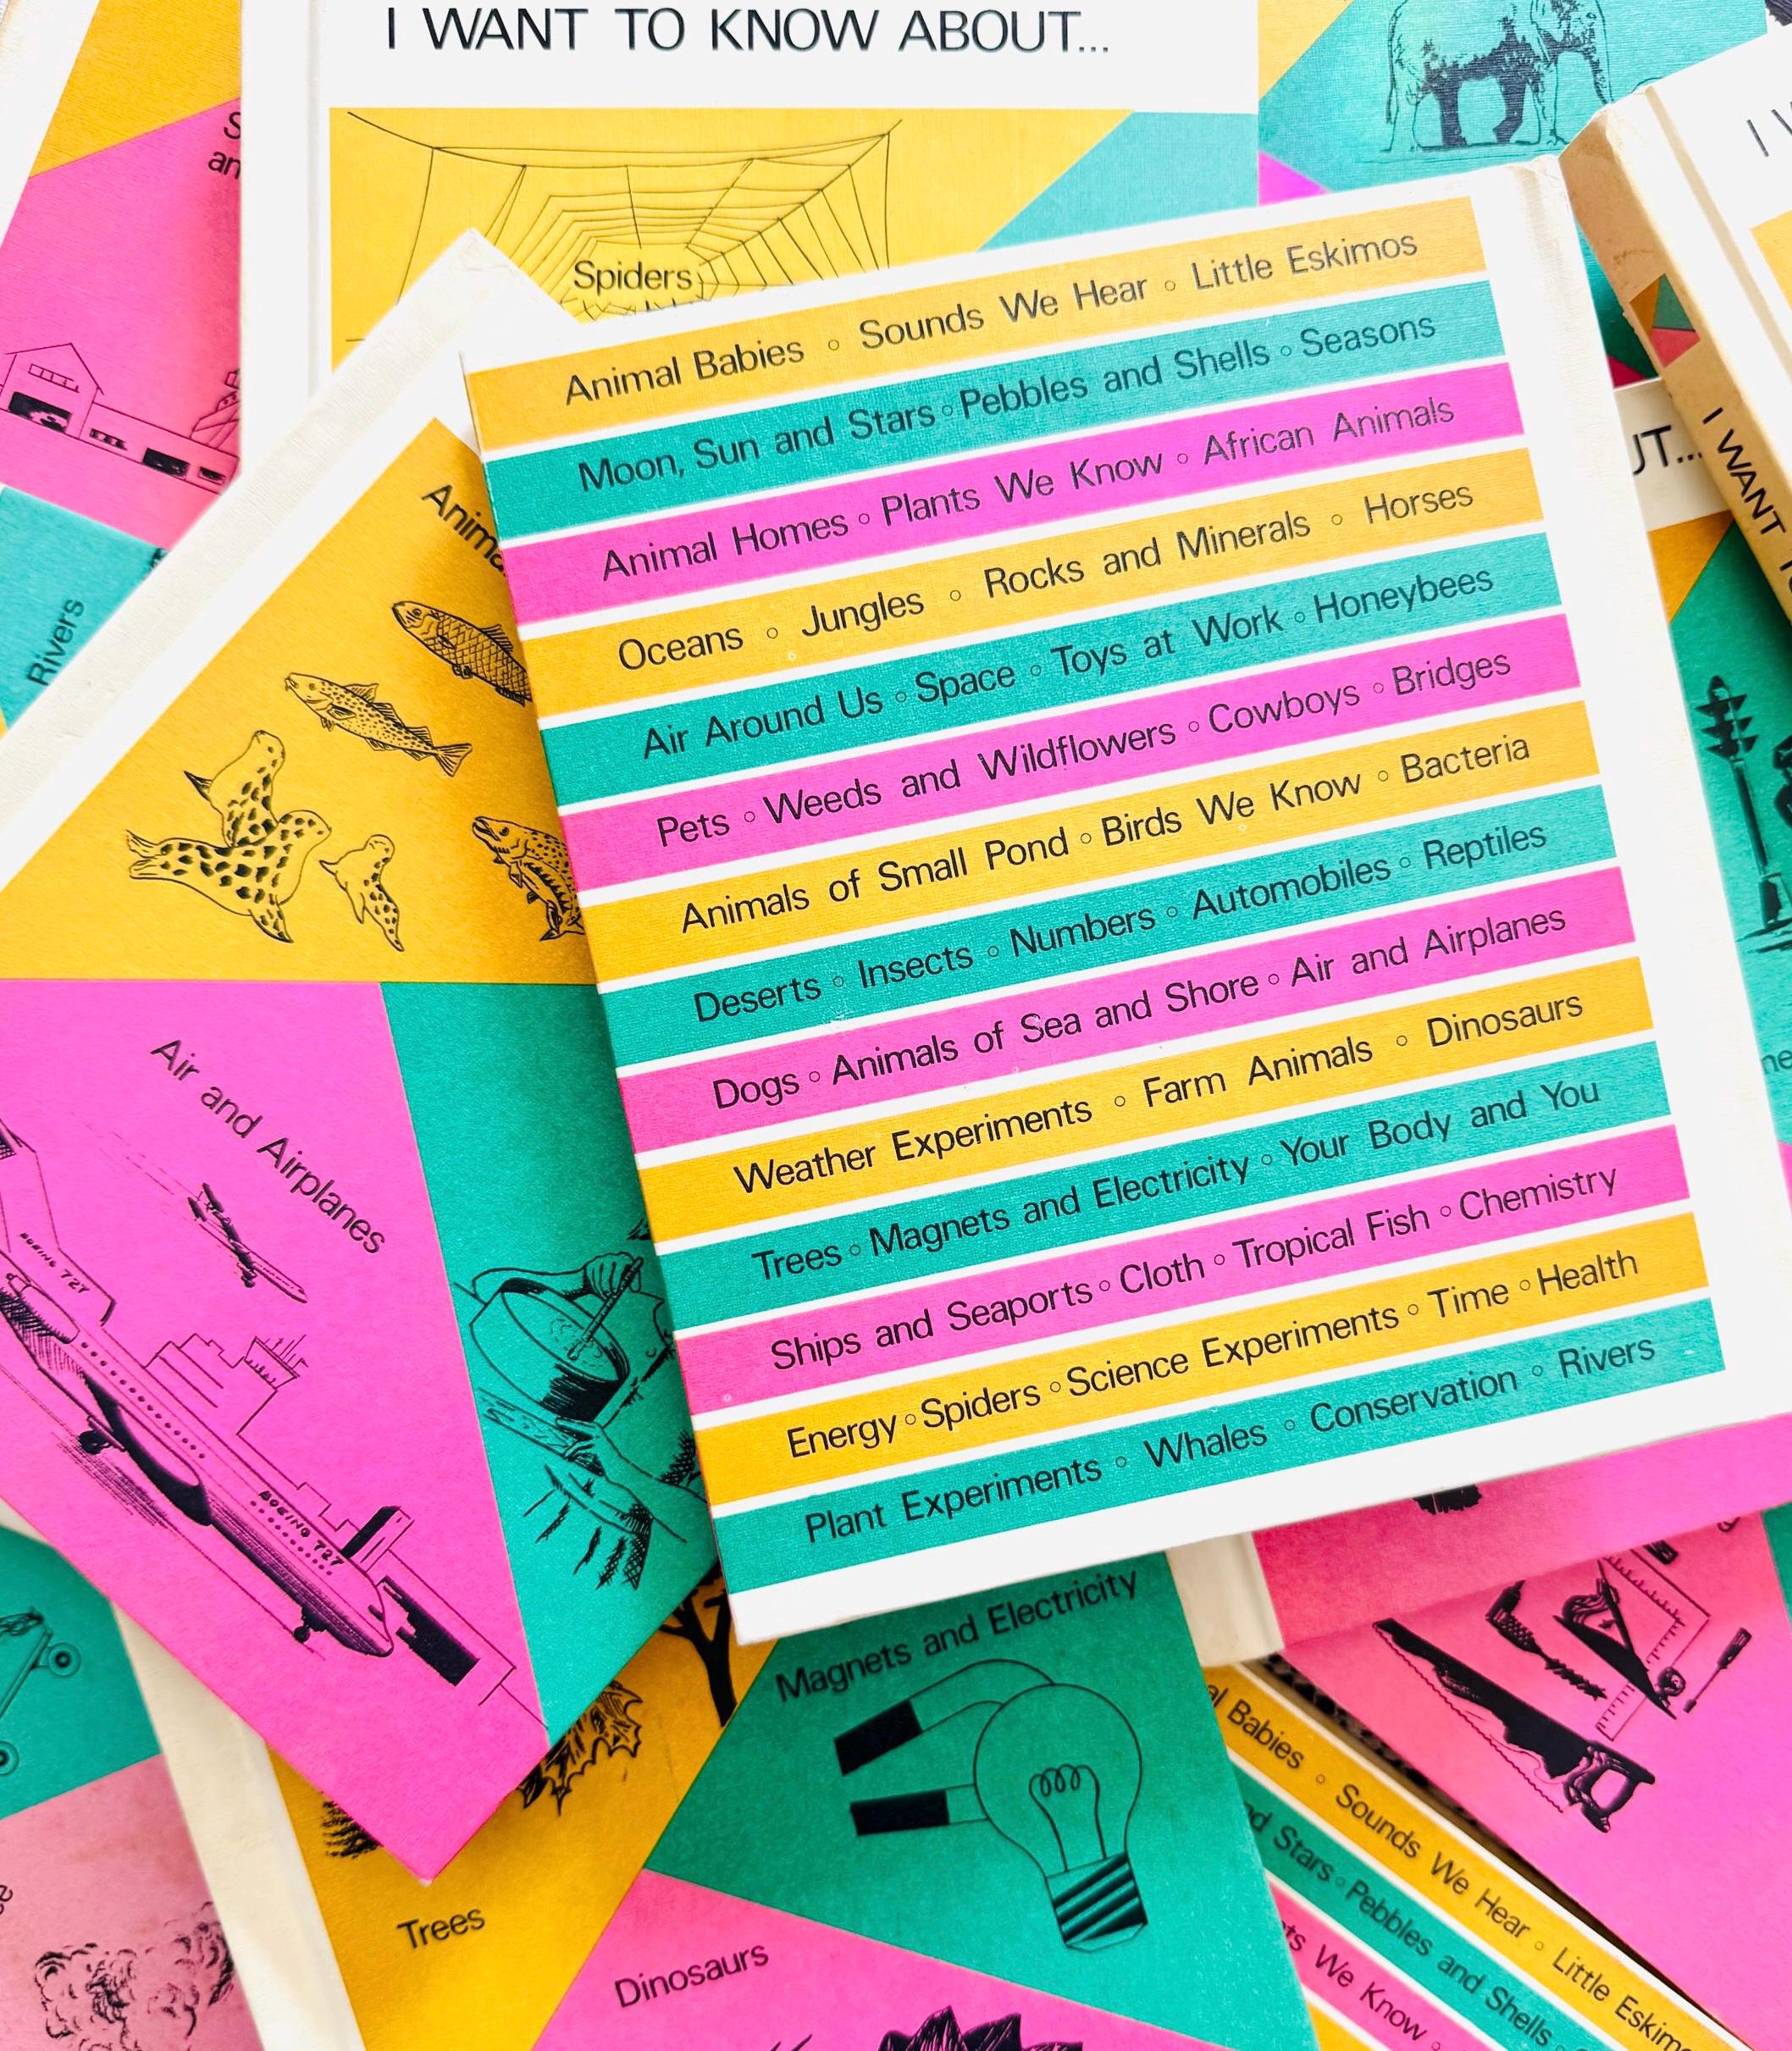 I WANT TO KNOW ABOUT...
Spiders
Rivers
Animal Babies ◦ Sounds We Hear ◦ Little Eskimos
Moon, Sun and Stars ◦ Pebbles and Shells ◦ Seasons
Animal Homes ◦ Plants We Know ◦ African Animals
Oceans ◦ Jungles ◦ Rocks and Minerals ◦ Horses
Air Around Us ◦ Space ◦ Toys at Work ◦ Honeybees
Pets ◦ Weeds and Wildflowers ◦ Cowboys ◦ Bridges
Animals of Small Pond ◦ Birds We Know ◦ Bacteria
Deserts ◦ Insects ◦ Numbers ◦ Automobiles ◦ Reptiles
Dogs ◦ Animals of Sea and Shore ◦ Air and Airplanes
Weather Experiments ◦ Farm Animals ◦ Dinosaurs
Trees ◦ Magnets and Electricity ◦ Your Body and You
Ships and Seaports ◦ Cloth ◦ Tropical Fish ◦ Chemistry
Energy ◦ Spiders ◦ Science Experiments ◦ Time ◦ Health
Plant Experiments ◦ Whales ◦ Conservation ◦ Rivers
I WANT
Air and Airplanes
BOEING 727
BOEING 727
Magnets and Electricity
Trees
Dinosaurs
Babies ◦ Sounds We Hear ◦ Little
Stars ◦ Pebbles and Shells ◦
We Know ◦